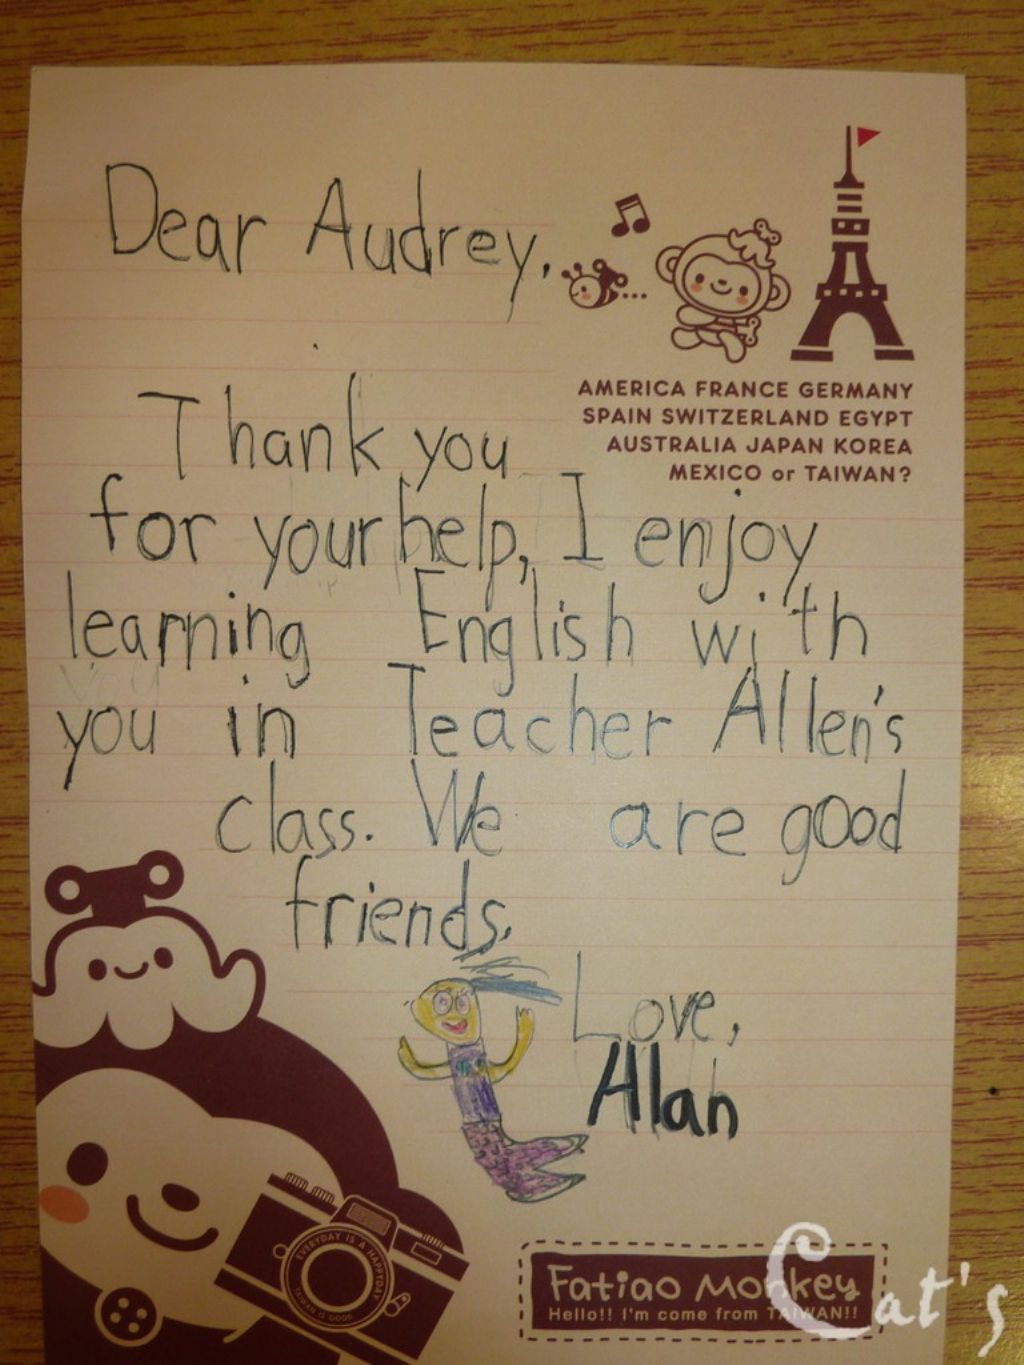 Dear Audrey,
AMERICA FRANCE GERMANY
SPAIN SWITZERLAND EGYPT
AUSTRALIA JAPAN KOREA
MEXICO or TAIWAN?
Thank you
for your help, I enjoy
learning English with
you in Teacher Allen's
class. We are good
friends.
Love,
Alan
EVERYDAY IS A HAPPYDAY
Fatiao Monkey
Hello!! I'm come from TAIWAN!!
Cat's